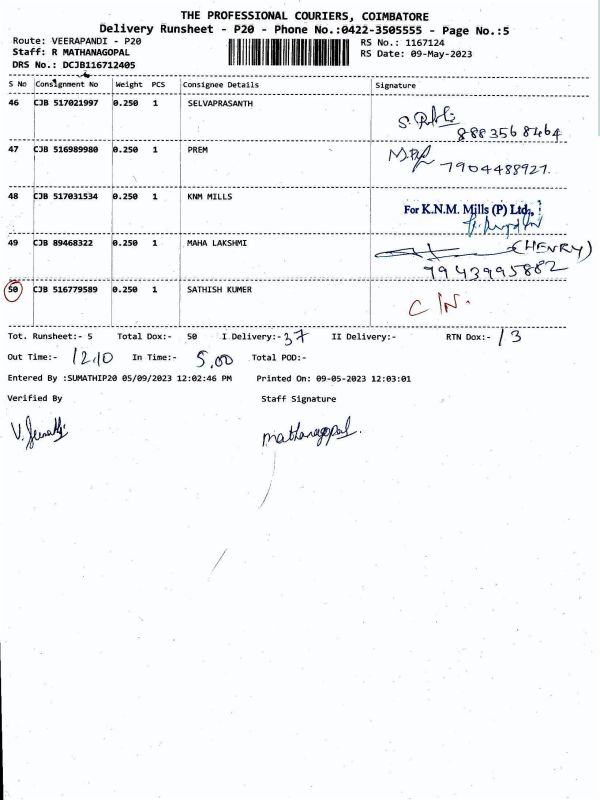 THE PROFESSIONAL COURIERS, COIMBATORE
Delivery Runsheet - P20 - Phone No.:0422-3505555 - Page No.:5
Route: VEERAPANDI - P20 RS No.: 1167124
Staff: R MATHANAGOPAL RS Date: 09-May-2023
DRS No.: DCJB116712405
S No Consignment No Weight PCS Consignee Details Signature
46 CJB 517021997 0.250 1 SELVAPRASANTH
8883568464
47 CJB 516989980 0.250 1 PREM
7904488927.
48 CJB 517031534 0.250 1 KNM MILLS
For K.N.M. Mills (P) Ltd.,
49 CJB 89468322 0.250 1 MAHA LAKSHMI (HENRY)
9943995882
50 CJB 516779589 0.250 1 SATHISH KUMER
C/N.
Tot. Runsheet:- 5 Total Dox:- 50 I Delivery:- 37 II Delivery:- RTN Dox:- 13
Out Time:- 12.10 In Time:- 5.00 Total POD:-
Entered By :SUMATHIP20 05/09/2023 12:02:46 PM Printed On: 09-05-2023 12:03:01
Verified By Staff Signature
mathanagopal.